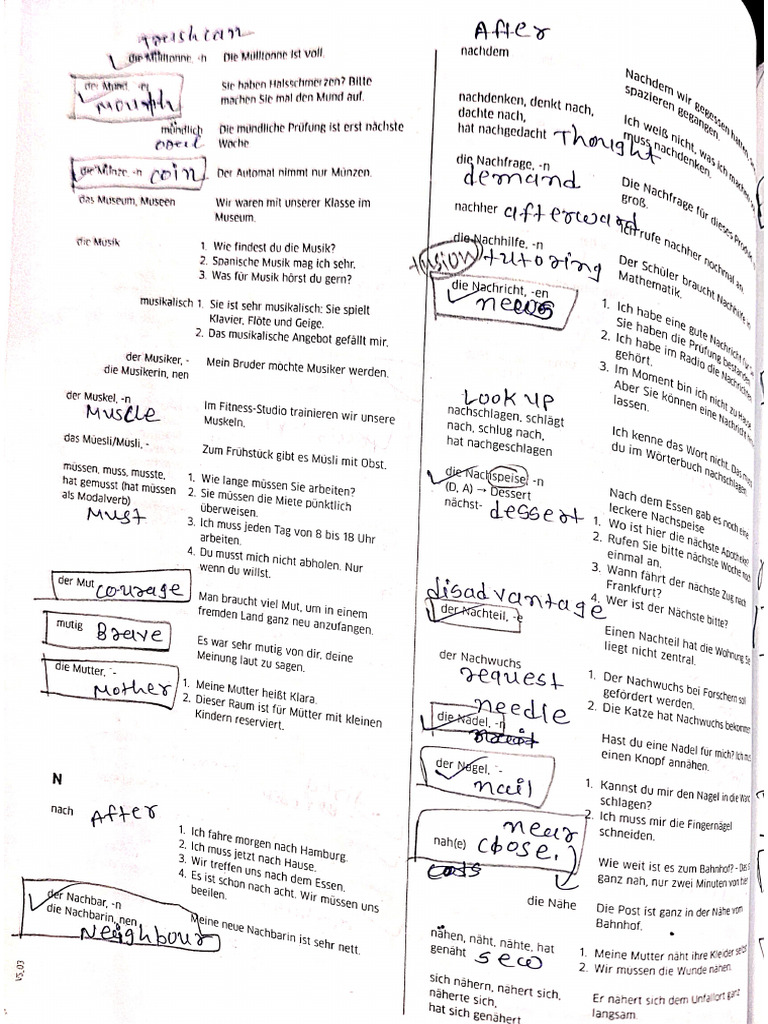 die Mülltonne, -n Die Mülltonne ist voll.
der Mund, -er Sie haben Halsschmerzen? Bitte
mouth machen Sie mal den Mund auf.
mündlich Die mündliche Prüfung ist erst nächste
Woche
die Münze, -n coin Der Automat nimmt nur Münzen.
das Museum, Museen Wir waren mit unserer Klasse im
Museum.
die Musik 1. Wie findest du die Musik?
2. Spanische Musik mag ich sehr.
3. Was für Musik hörst du gern?
musikalisch 1. Sie ist sehr musikalisch: Sie spielt
Klavier, Flöte und Geige.
2. Das musikalische Angebot gefällt mir.
der Musiker, - Mein Bruder möchte Musiker werden.
die Musikerin, nen
der Muskel, -n Im Fitness-Studio trainieren wir unsere
Muscle Muskeln.
das Müesli/Müsli, - Zum Frühstück gibt es Müsli mit Obst.
müssen, muss, musste, 1. Wie lange müssen Sie arbeiten?
hat gemusst (hat müssen 2. Sie müssen die Miete pünktlich
als Modalverb) überweisen.
Must 3. Ich muss jeden Tag von 8 bis 18 Uhr
arbeiten.
4. Du musst mich nicht abholen. Nur
wenn du willst.
der Mut courage Man braucht viel Mut, um in einem
fremden Land ganz neu anzufangen.
mutig Brave Es war sehr mutig von dir, deine
Meinung laut zu sagen.
die Mutter, ¨- 1. Meine Mutter heißt Klara.
Mother 2. Dieser Raum ist für Mütter mit kleinen
Kindern reserviert.
N
nach After 1. Ich fahre morgen nach Hamburg.
2. Ich muss jetzt nach Hause.
3. Wir treffen uns nach dem Essen.
4. Es ist schon nach acht. Wir müssen uns
beeilen.
der Nachbar, -n Meine neue Nachbarin ist sehr nett.
die Nachbarin, nen
Neighbour
VS_03
After
nachdem Nachdem wir gegessen hatten,
spazieren gegangen.
nachdenken, denkt nach, Ich weiß nicht, was ich machen
dachte nach, muss nachdenken.
hat nachgedacht Thought
die Nachfrage, -n Die Nachfrage für dieses
demand groß.
nachher afterward Ich rufe nachher nochmal an.
die Nachhilfe, -n Der Schüler braucht Nachhilfe in
tusion tutoring Mathematik.
die Nachricht, -en 1. Ich habe eine gute Nachricht für
news Sie haben die Prüfung bestanden
2. Ich habe im Radio die Nachrichten
gehört.
3. Im Moment bin ich nicht zu Hause
Aber Sie können eine Nachricht
lassen.
Look up
nachschlagen, schlägt Ich kenne das Wort nicht. Das muss
nach, schlug nach, du im Wörterbuch nachschlagen
hat nachgeschlagen
die Nachspeise, -n Nach dem Essen gab es noch eine
(D, A) → Dessert leckere Nachspeise
nächst- dessert 1. Wo ist hier die nächste Apotheke
2. Rufen Sie bitte nächste Woche noch
einmal an.
3. Wann fährt der nächste Zug nach
Frankfurt?
4. Wer ist der Nächste bitte?
disadvantage
der Nachteil, -e Einen Nachteil hat die Wohnung
liegt nicht zentral.
der Nachwuchs 1. Der Nachwuchs bei Forschern soll
request gefördert werden.
2. Die Katze hat Nachwuchs bekommen
needle
die Nadel, -n Hast du eine Nadel für mich? Ich
einen Knopf annähen.
der Nagel, ¨- 1. Kannst du mir den Nagel in die Wand
nail schlagen?
2. Ich muss mir die Fingernägel
schneiden.
near
nah(e) close. Wie weit ist es zum Bahnhof? - Das
ganz nah, nur zwei Minuten von hier
die Nähe Die Post ist ganz in der Nähe vom
Bahnhof.
nähen, näht, nähte, hat 1. Meine Mutter näht ihre Kleider selbst
genäht sew 2. Wir müssen die Wunde nähen
sich nähern, nähert sich, Er nähert sich dem Unfallort ganz
näherte sich, langsam.
hat sich genähert